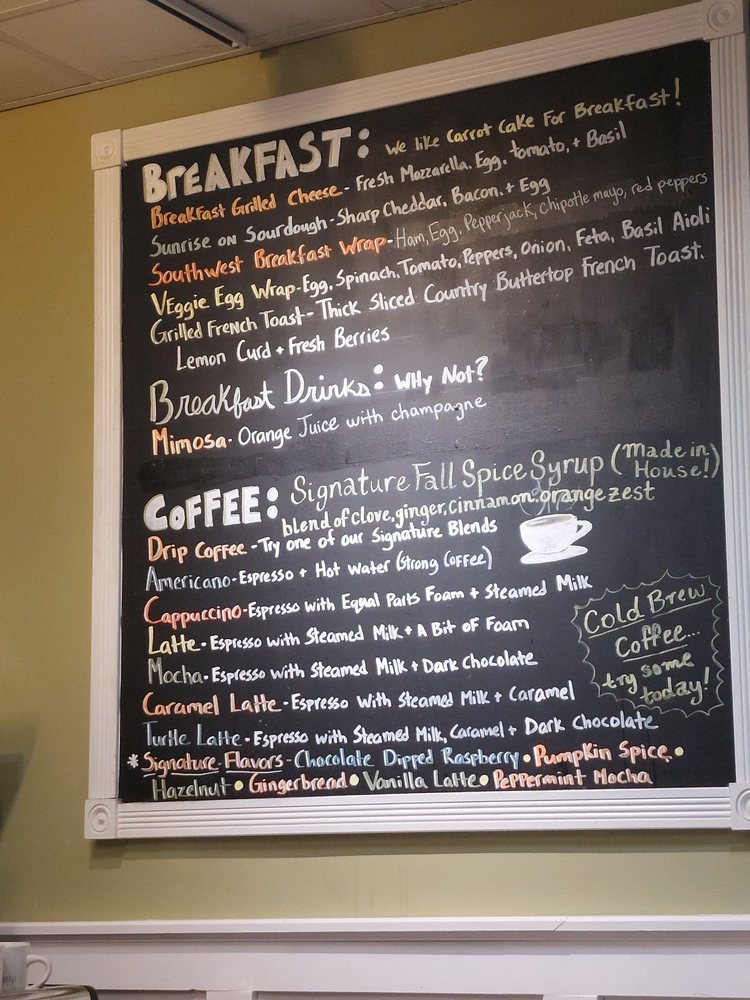 BREAKFAST: We like Carrot Cake For Breakfast!
Breakfast Grilled Cheese - Fresh Mozzarella, Egg, tomato, + Basil
Sunrise on Sourdough - Sharp Cheddar, Bacon, + Egg
Southwest Breakfast Wrap - Ham, Egg, Pepperjack, chipotle mayo, red peppers
Veggie Egg Wrap - Egg, Spinach, Tomato, Peppers, Onion, Feta, Basil Aioli
Grilled French Toast - Thick Sliced Country Buttertop French Toast,
Lemon Curd + Fresh Berries
Breakfast Drinks: Why Not?
Mimosa - Orange Juice with champagne
COFFEE: Signature Fall Spice Syrup (Made in House!)
blend of clove, ginger, cinnamon, orange zest
Drip Coffee - Try one of our Signature Blends
Americano - Espresso + Hot Water (Strong Coffee)
Cappuccino - Espresso with Equal Parts Foam + Steamed Milk
Latte - Espresso with Steamed Milk + A Bit of Foam
Mocha - Espresso with Steamed Milk + Dark Chocolate
Caramel Latte - Espresso with Steamed Milk + Caramel
Turtle Latte - Espresso with Steamed Milk, Caramel + Dark Chocolate
*Signature Flavors - Chocolate Dipped Raspberry • Pumpkin Spice •
Hazelnut • Gingerbread • Vanilla Latte • Peppermint Mocha
Cold Brew
Coffee...
try some
today!